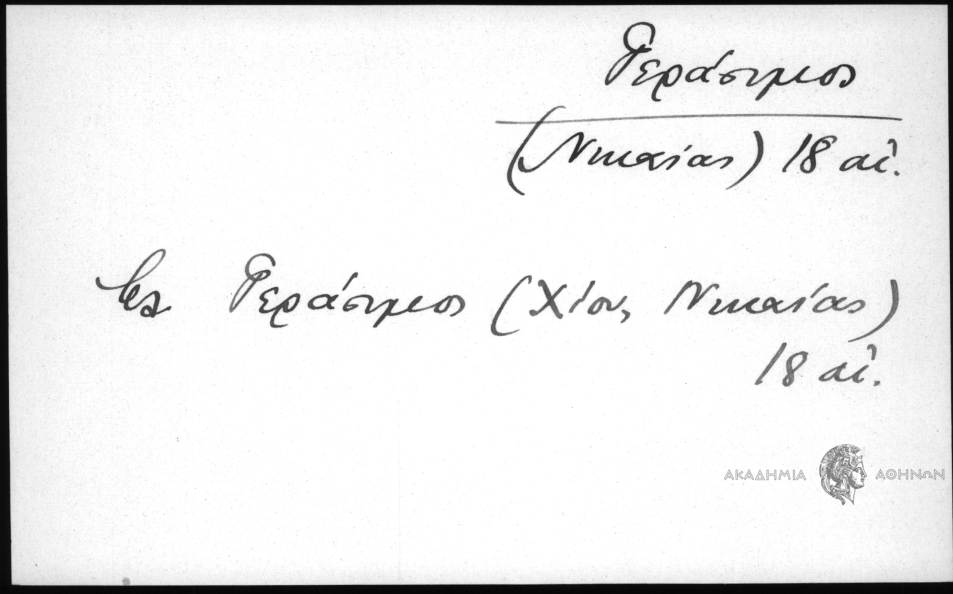 Γεράσιμος
(Νικαίας) 18 αἰ.
βλ Γεράσιμος (Χίου, Νικαίας)
18 αἰ.
ΑΚΑΔΗΜΙΑ ΑΘΗΝΩΝ